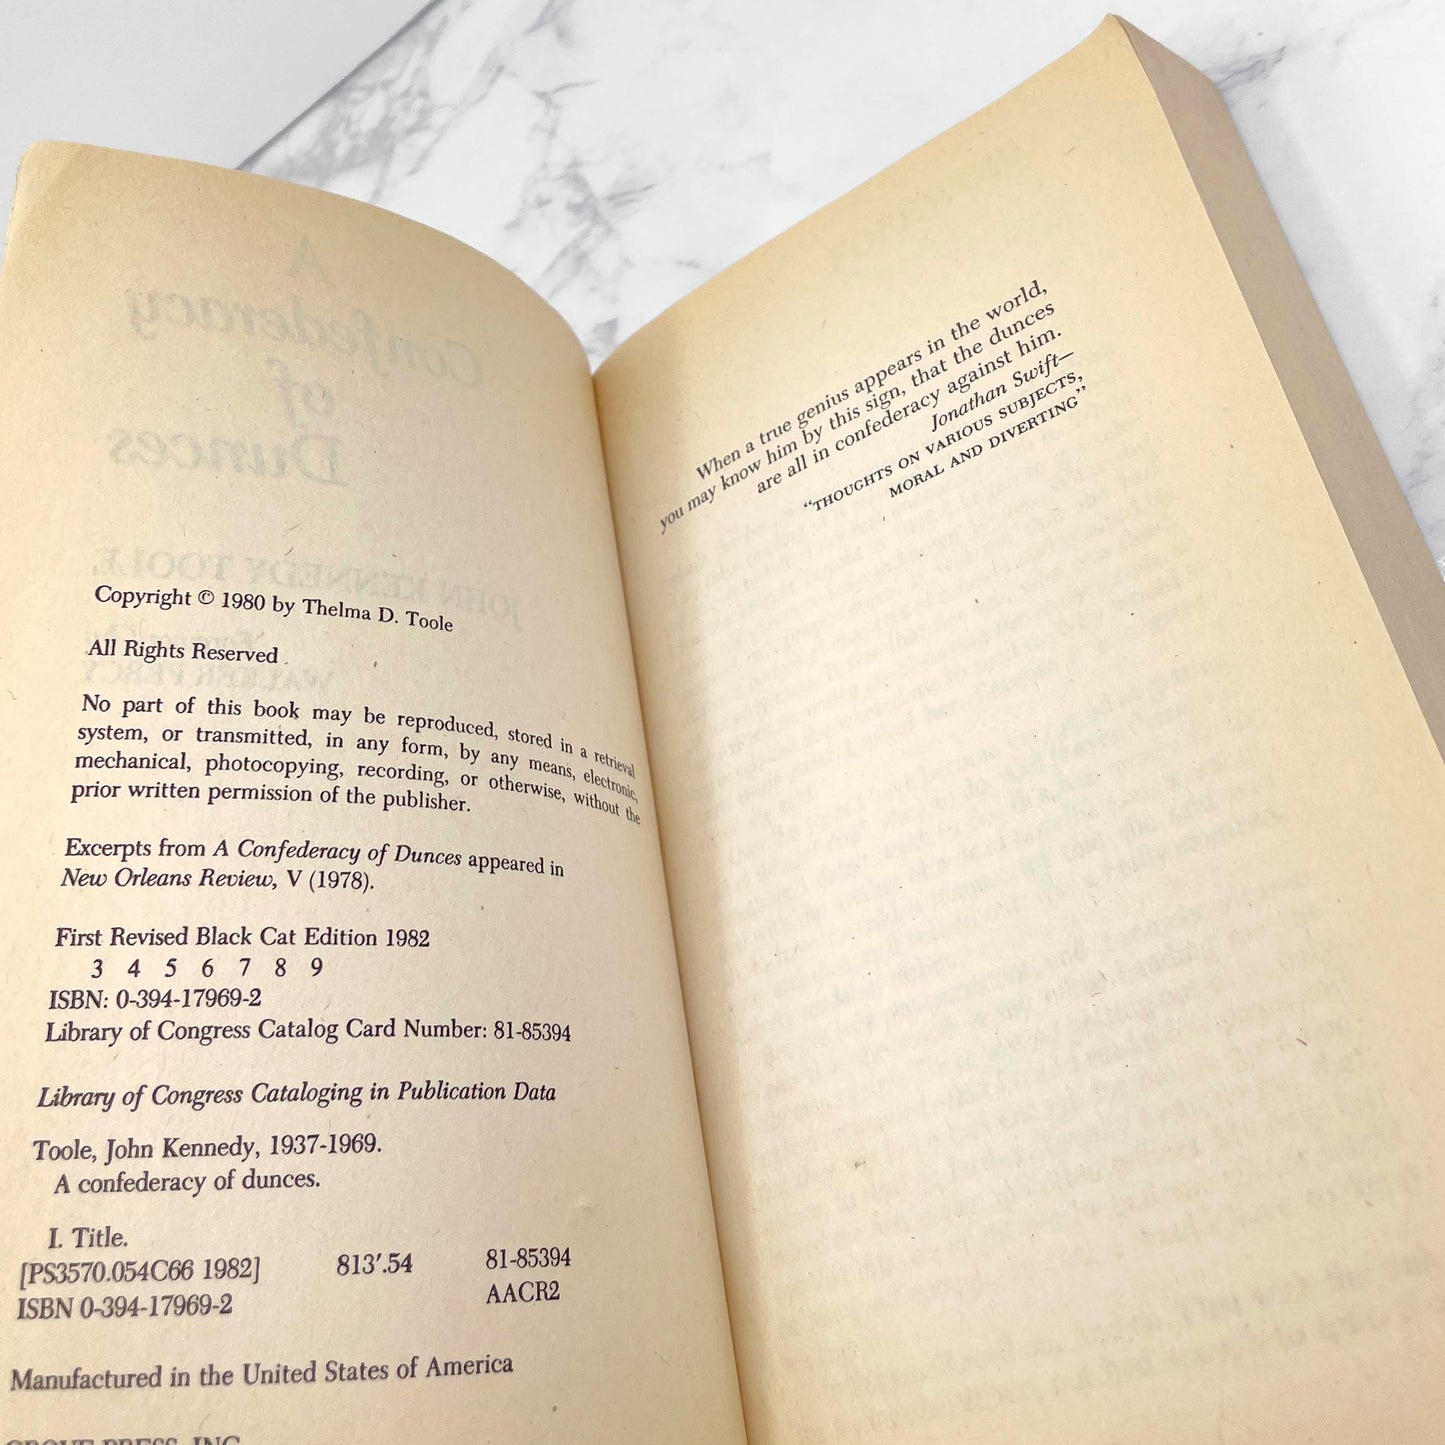 Copyright © 1980 by Thelma D. Toole
All Rights Reserved
No part of this book may be reproduced, stored in a retrieval
system, or transmitted, in any form, by any means, electronic,
mechanical, photocopying, recording, or otherwise, without the
prior written permission of the publisher.
Excerpts from A Confederacy of Dunces appeared in
New Orleans Review, V (1978).
First Revised Black Cat Edition 1982
3 4 5 6 7 8 9
ISBN: 0-394-17969-2
Library of Congress Catalog Card Number: 81-85394
Library of Congress Cataloging in Publication Data
Toole, John Kennedy, 1937-1969.
A confederacy of dunces.
I. Title.
[PS3570.054C66 1982] 813'.54 81-85394
ISBN 0-394-17969-2 AACR2
Manufactured in the United States of America
GROVE PRESS, INC.
When a true genius appears in the world,
you may know him by this sign, that the dunces
are all in confederacy against him.
Jonathan Swift—
"THOUGHTS ON VARIOUS SUBJECTS,
MORAL AND DIVERTING"